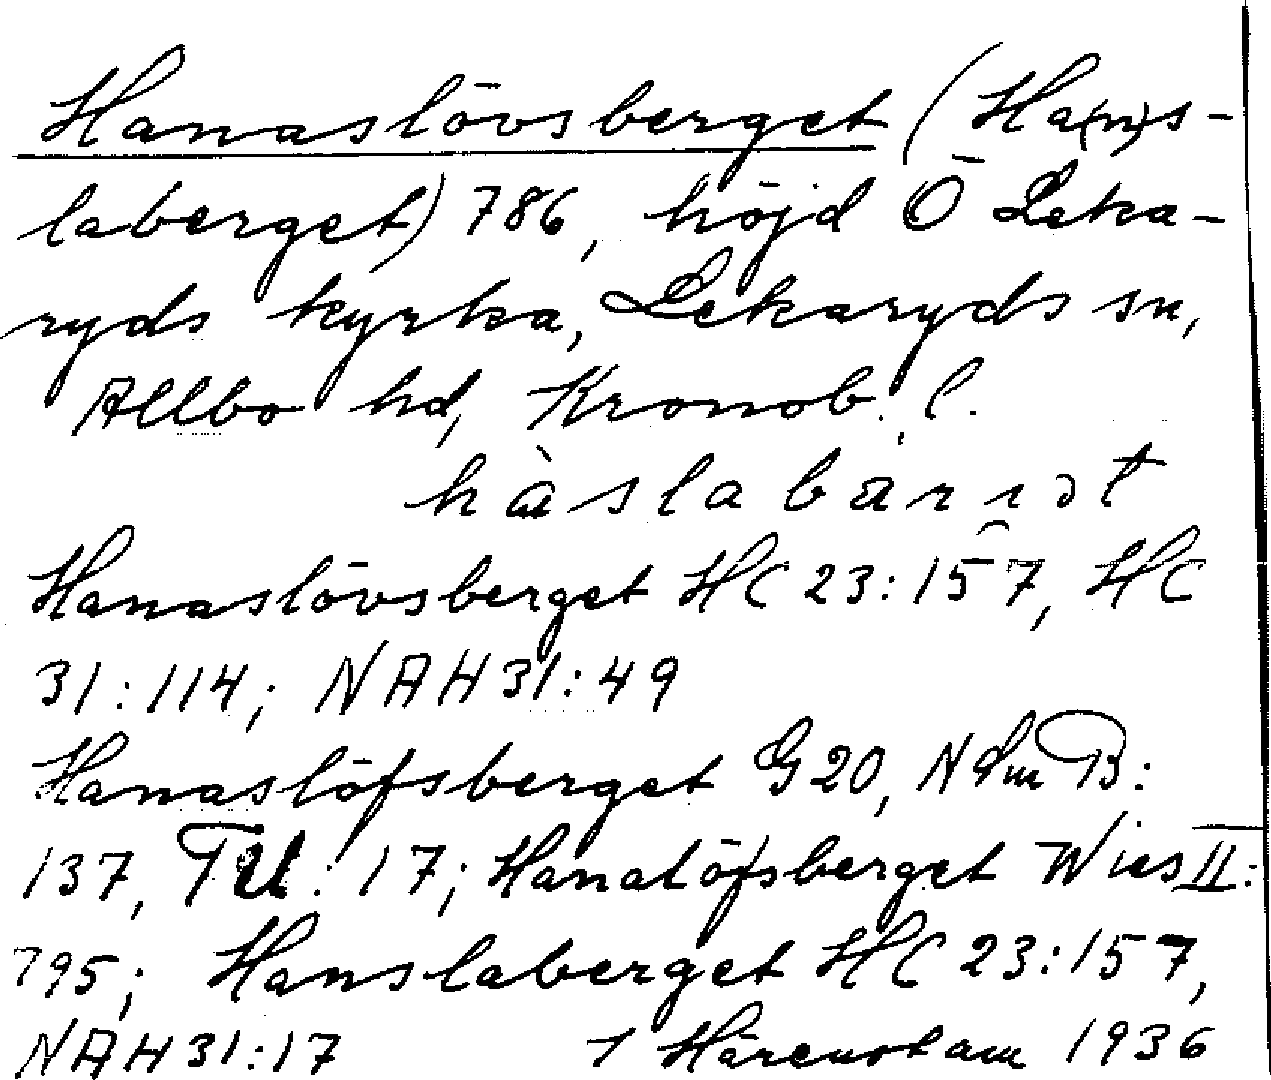 Hanaslövsberget (Ha(n)s-
laberget) 786, höjd Ö Leka-
ryds kyrka, Lekaryds sn,
Allbo hd, Kronob. l.
hàslabärɹət
Hanaslövsberget HC 23:157, HC
31:114; NAH 31:49
Hanaslöfsberget G 20, NdmB:
137, TU: 17; Hanalöfsberget Wies II:
795; Hanslaberget HC 23:157,
NAH 31:17 1 Härenstam 1936